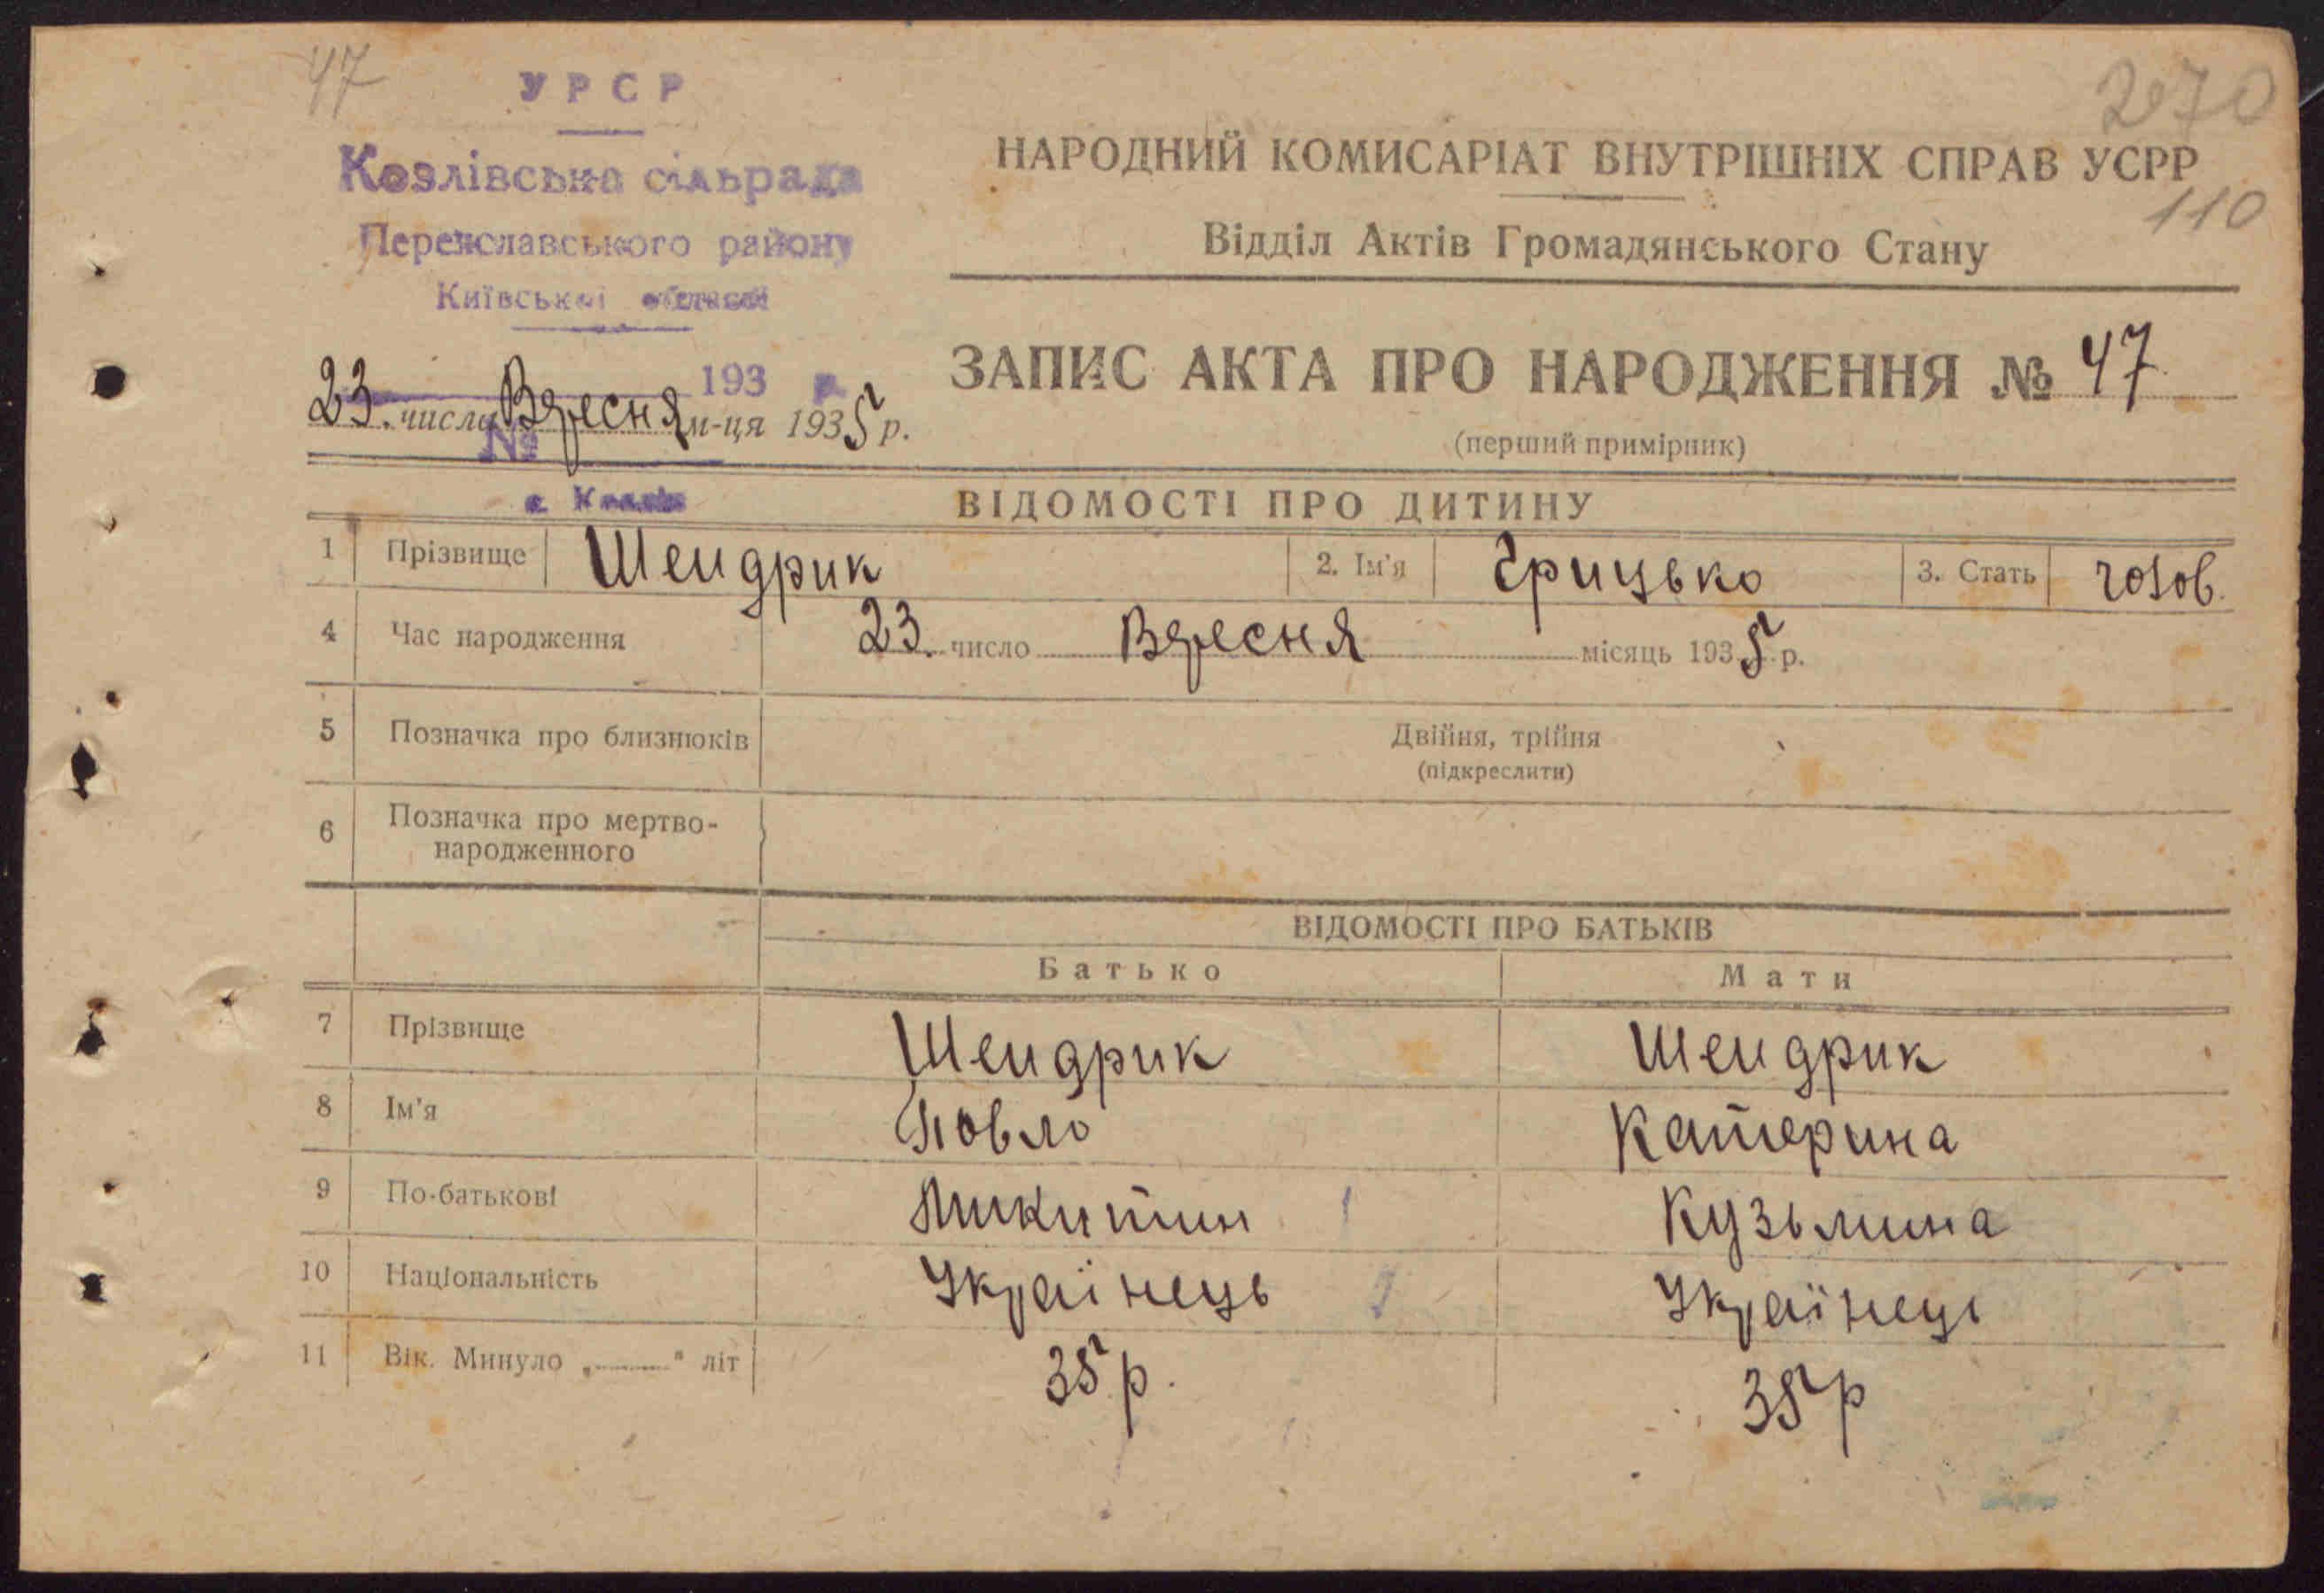 47
270
110
УРСР
Козлівська сільрада
Переяславського району
Київської області
193 р.
№
с. Козлів
НАРОДНИЙ КОМИСАРІАТ ВНУТРІШНІХ СПРАВ УСРР
Відділ Актів Громадянського Стану
ЗАПИС АКТА ПРО НАРОДЖЕННЯ № 47
(перший примірник)
23. числа Вересня м-ця 1935 р.
ВІДОМОСТІ ПРО ДИТИНУ
1 Прізвище Шендрик 2. Ім'я Грицько 3. Стать чолов.
4 Час народження 23. число Вересня місяць 1935 р.
5 Позначка про близнюків Двійня, трійня
(підкреслити)
6 Позначка про мертво-
народженного
ВІДОМОСТІ ПРО БАТЬКІВ
Батько Мати
7 Прізвище Шендрик Шендрик
8 Ім'я Павло Катерина
9 По-батькові Микитин Кузьмина
10 Національність Українець Українець
11 Вік. Минуло „ " літ 35 р. 35 р